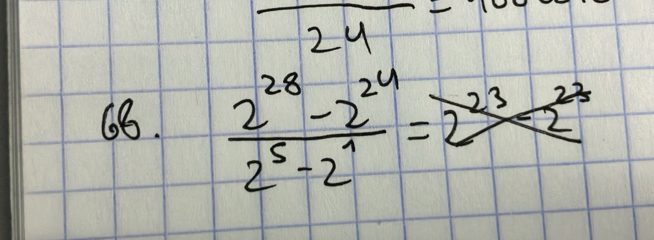 24
68. (2^28 - 2^24) / (2^5 - 2^1) = 2^23 - 2^23